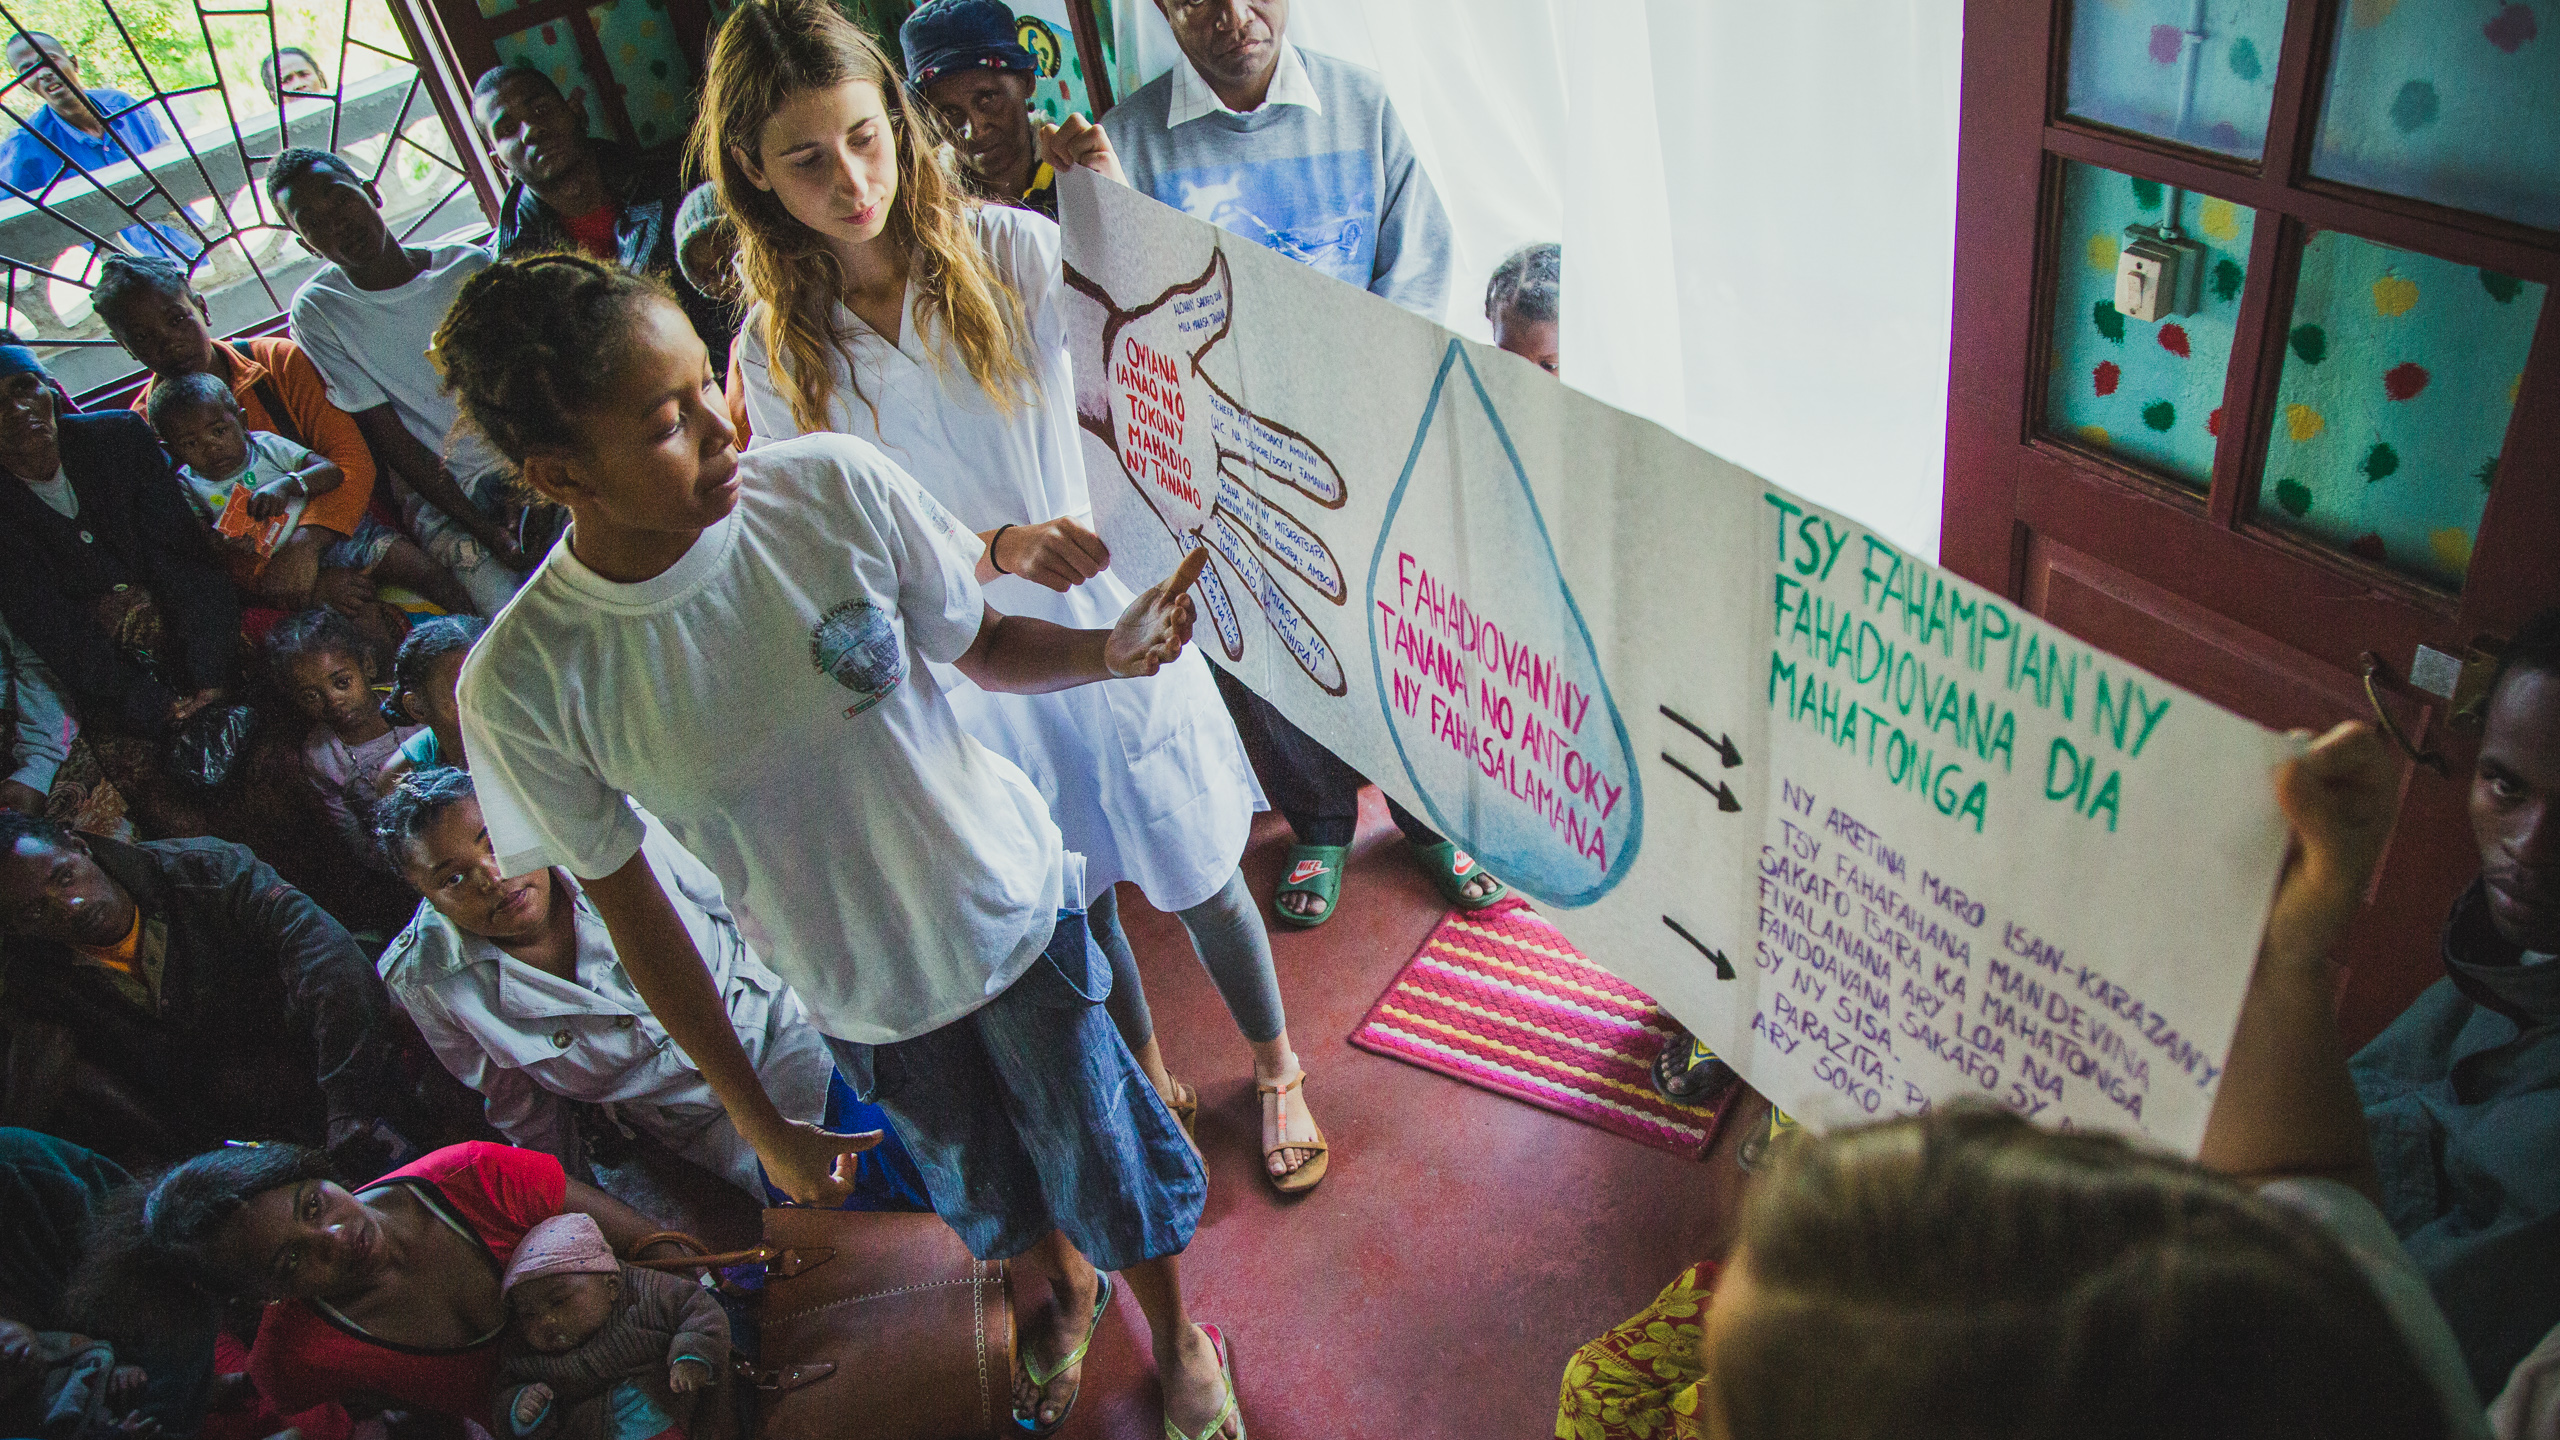 OVIANA
IANAO NO
TOKONY
MAHADIO
NY TANANO
ALOHAN'NY SAKAFO DIA
MILA MANASA TANANA
REHEFA AVY MIVOAKY AMIN'NY
RAHA AVY NY MITSABATSAPA
RAHA AVY MIASA NA
FAHADIOVAN'NY
TANANA NO ANTOKY
NY FAHASALAMANA
TSY FAHAMPIAN'NY
FAHADIOVANA DIA
MAHATONGA
NY ARETINA MARO ISAN-KARAZANY
TSY FAHAFAHANA MANDEVINA
SAKAFO TSARA KA MAHATONGA
FIVALANANA ARY LOA NA
FANDOAVANA SAKAFO SY
SY NY SISA.
PARAZITA:
ARY SOKO
NIKE
NIKE